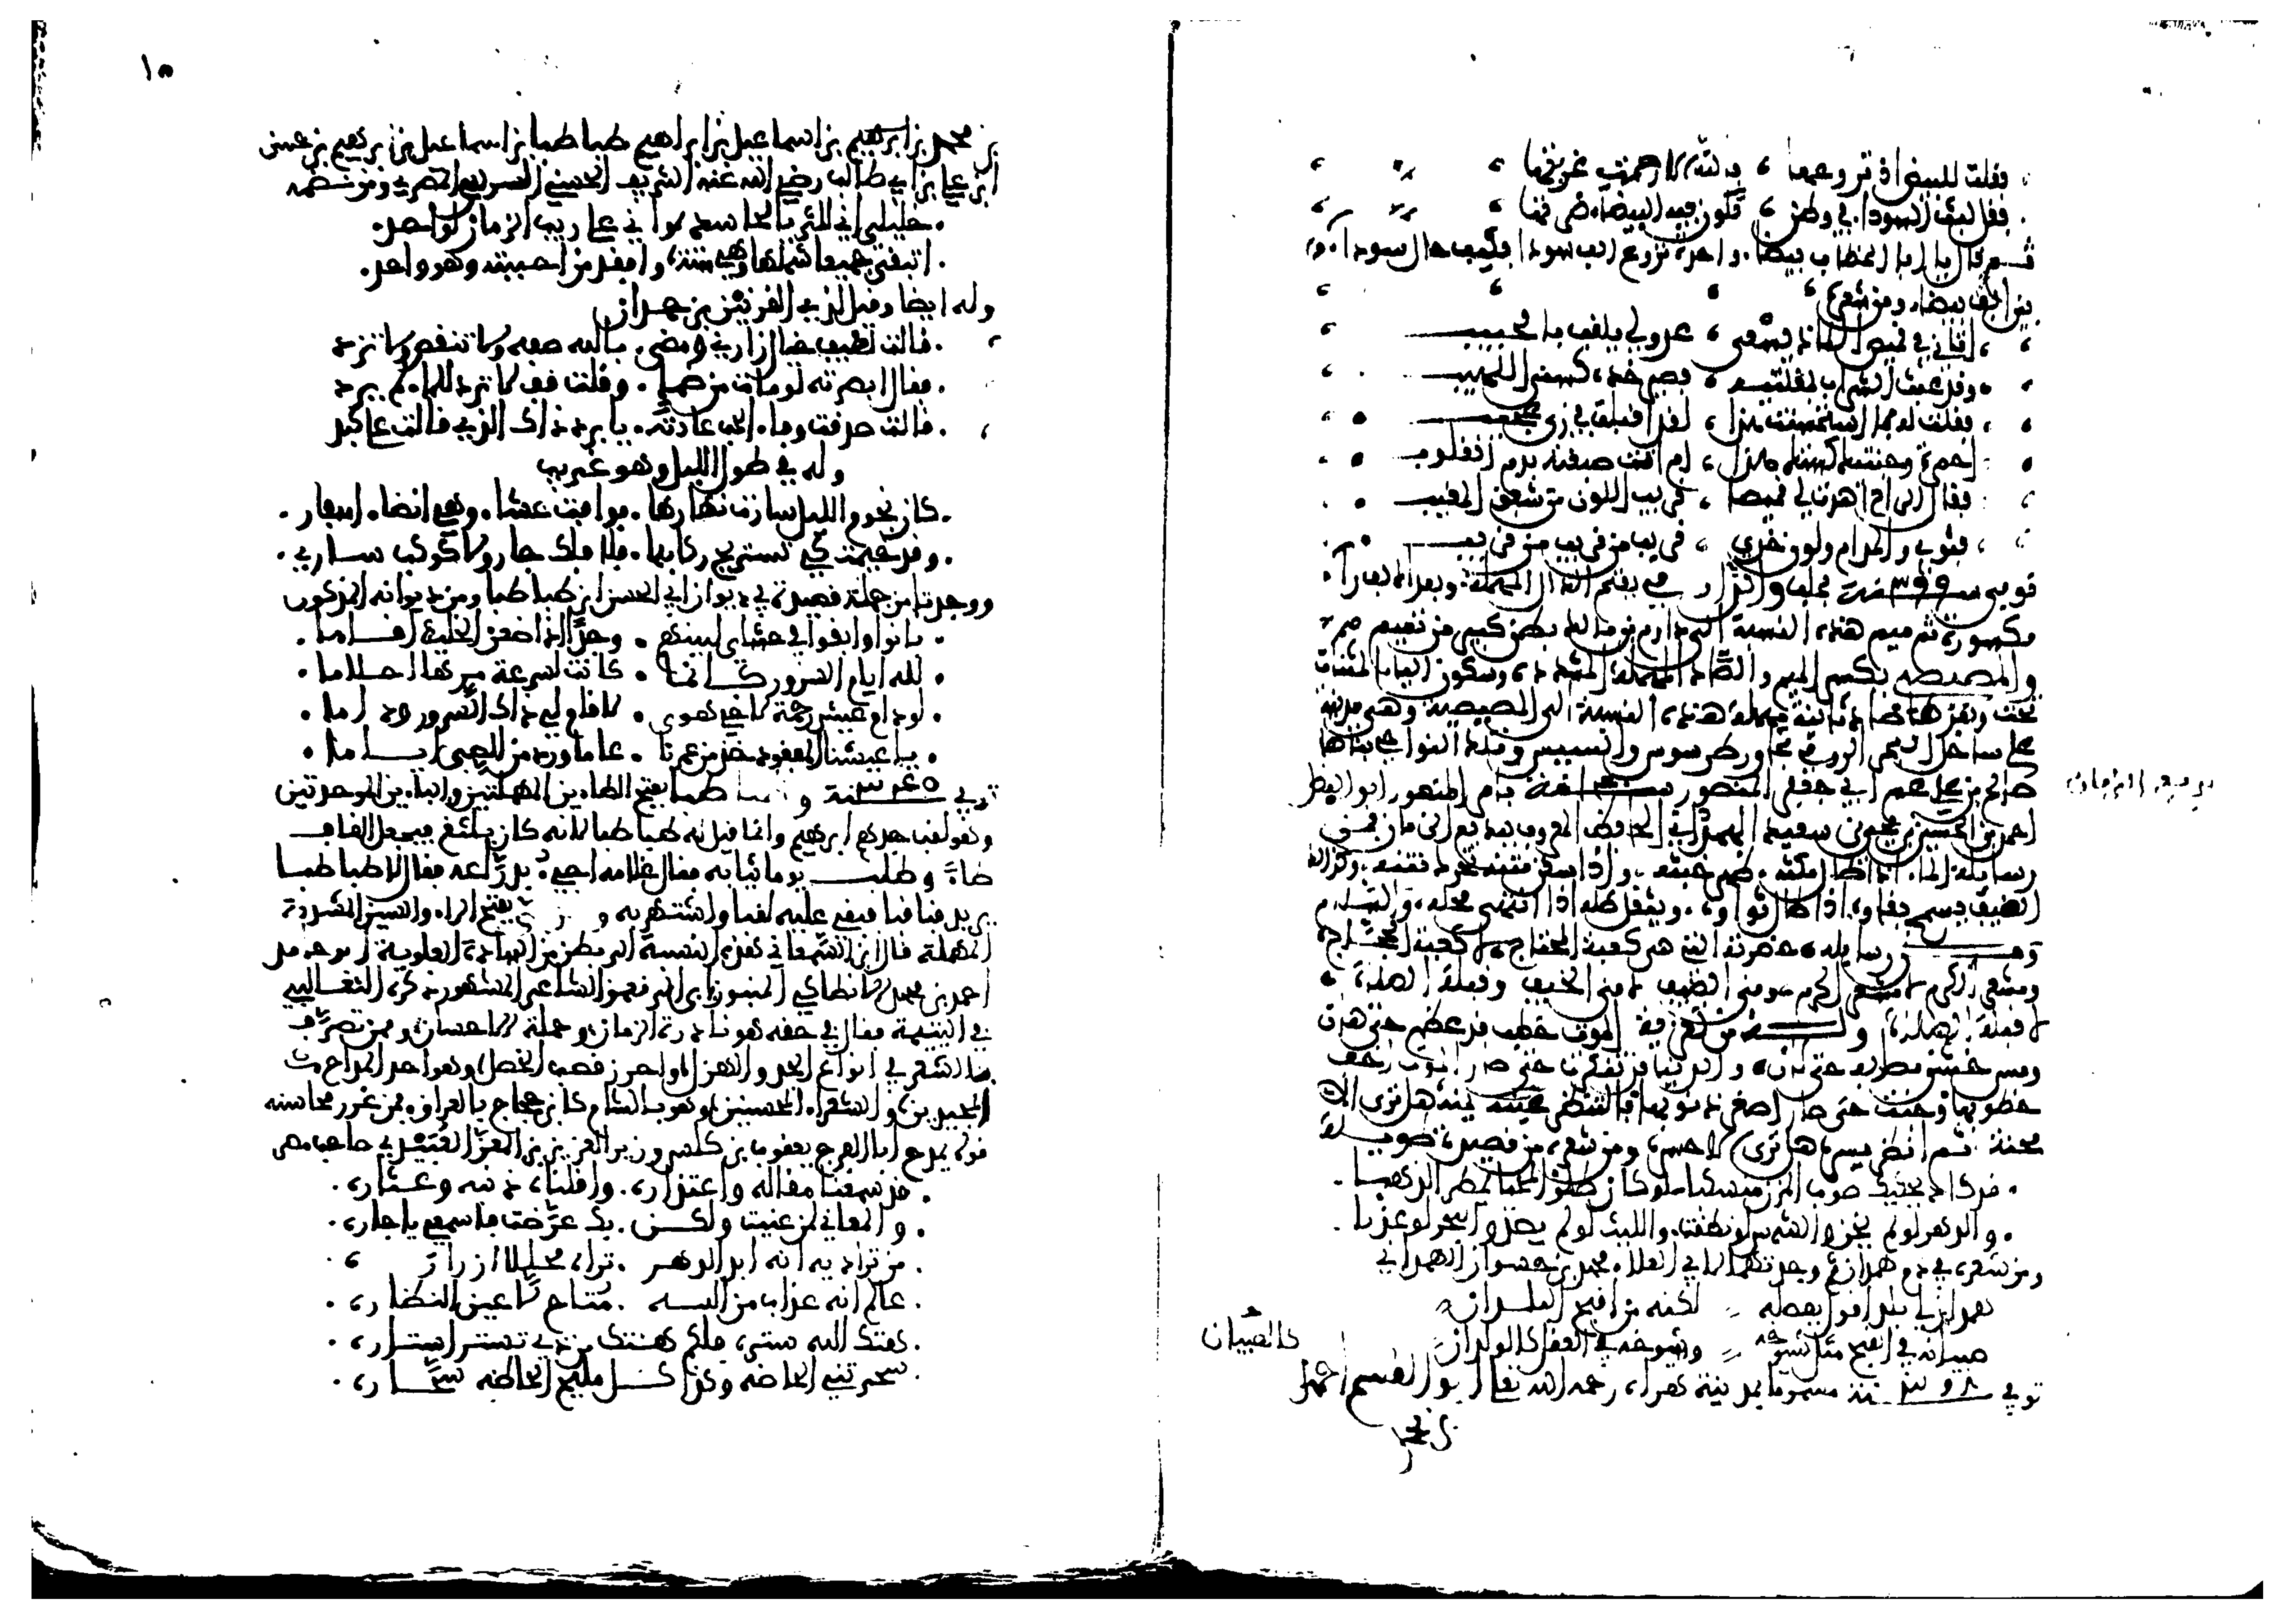 فقلت للبيض اذ تروعها ، بالله الا رحمت غربتها
فقل لبث السوداء في وطن ، تكون فيه البيضاء ضرتها
ثم قال يا ابا الخطاب بيضاء واحدة تروع الف سوداء فكيف حال سوداء
بين الف بيضاء ومن شعره
اتاني في قميص اللاذ يسعى ، عدو لي يلقب بالحبيب
وقد عبث الشراب بمقلتيه ، فصير خده كسنى اللهيب
فقلت له بما استحسنت هذا ، لقد اقبلت في زي عجيب
احمرة وجنتيك كستك هذا ، ام انت صبغته بدم القلوب
فقال الراح اهدت لي قميصا ، قريب اللون من شفق المغيب
فثوبي والمدام ولون خدي ، قريب من قريب من قريب
توفي سنة ٣٩٩ بحلب والدارمي بفتح الدال المهملة وبعد الالف راء
مكسورة ثم ميم هذه النسبة الى دارم بن مالك بطن كبير من تميم
والمصيصي بكسر الميم والصاد المهملة المشددة وسكون الياء المثناة
تحت وبعدها صاد ثانية مهملة هذه النسبة الى المصيصة وهي مدينة
على ساحل البحر الرومي تجاور طرسوس والسيس وتلك النواحي بناها
صالح بن علي عم ابي جعفر المنصور سنة بامر المنصور ابو الفضل
بديع الزمان
احمد بن الحسين بن يحيى بن سعيد الهمذاني الحافظ المعروف ببديع الزمان فمن
رسايله الماء اذا طال مكثه ظهر خبثه واذا سكن متنه تحرك نتنه وكذلك
الضيف يسمج لقاؤه اذا طال ثواؤه ويثقل ظله اذا انتهى محله والسلام
ومن رسايله حضرته التي هي كعبة المحتاج لا كعبة الحجاج
ومشعر الكرم لا مشعر الحرم ومنى الضيف لا منى الخيف وقبلة الصلاة
لا قبلة الصلاة وله من تعزية الموت خطب قد عظم حتى هان
ومس خشن حتى لان والدنيا قد تنكرت حتى صار الموت اخف
خطوبها وجنت حتى صار اصغر ذنوبها فانظر يمنة هل ترى الا
محنة ثم انظر يسرة هل ترى الا حسرة ومن شعره من قصيدة طويلة
وكاد يحكيك صوب الغيث منسكبا لو كان طلق المحيا يمطر الذهبا
والدهر لو لم يخن والشمس لو نطقت والليث لو لم يصد والبحر لو عذبا
ومن شعره في ذم همذان ثم وجدتهما لابي العلاء محمد بن حسول الهمذاني
همذان لي بلد اقول بفضله لكنه من اقبح البلدان
صبيانه في القبح مثل شيوخه وشيوخه في العقل كالولدان
كالصبيان
توفي سنة مسموما بمدينة هراة رحمه الله تعالى ابو القسم احمد
بن محمد
١٥
بن محمد بن ابراهيم بن اسماعيل بن ابراهيم طباطبا بن اسماعيل بن ابرهيم بن حسن
ابن علي بن ابي طالب رضي الله عنه الشريف الحسني الرسي المصري ومن نظمه
خليلي اني للثريا لحاسد واني على ريب الزمان لواجد
اتبقى جميعا شملها وهي ستة وافقد من احببته وهو واحد
وله ايضا وقيل لذي القرنين بن حمدان
قالت لطيف خيال زارني ومضى بالله صفه ولا تنقص ولا تزد
فقال ابصرته لو مات من ظمأ وقلت قف لا ترد للماء لم يرد
قالت صدقت وفاء الحب عادته يا برد ذاك الذي قالت على كبدي
وله في طول الليل وهو غريب
كان نجوم الليل سارت نهارها فوافت عشاء وهي انضاء اسفار
وقد خيمت كي تستريح ركابها فلا فلك جار ولا كوكب ساري
ووجدتها من جملة قصيدة في ديوان ابي الحسن ابن طباطبا ومن ديوانه المذكور
بانوا وابقوا في حشاي لبينهم وجدا اذا ظعن الخليط اقاما
لله ايام السرور كانما كانت لسرعة مرها احلاما
لو دام عيش رحمة لاخي هوى لاقام لي ذاك السرور وداما
يا عيشنا المفقود خذ من عمرنا عاما ورد من الصبى اياما
توفي سنة ٣٤٥ و طباطبا بفتح الطاءين المهملتين والباءين الموحدتين
وهو لقب جدهم ابرهيم وانما قيل له طباطبا لانه كان يلثغ فيجعل القاف
طاء وطلب يوما ثيابه فقال غلامه اجيء بدراعة فقال لا طباطبا
يريد قباقبا فبقي عليه لقبا واشتهر به و بفتح الراء والسين المشددة
المهملة قال ابن السمعاني هذه النسبة الى بطن من السادة العلوية ابو حامد
احمد بن محمد الانطاكي المنبوز بابي الرقعمق الشاعر المشهور ذكره الثعالبي
في اليتيمة فقال في حقه هو نادرة الزمان وجملة الاحسان وممن تصرف
بالشعر في انواع الجد والهزل واحرز قصب الخصل وهو احد المداح
المجيدين والشعراء المحسنين وهو بالشام كابن حجاج بالعراق فمن غرر محاسنه
قوله يمدح ابا الفرج يعقوب بن كلس وزير العزيز بن المعز العبيدي صاحب مصر
قد سمعنا مقاله واعتذاره واقلناه ذنبه وعثاره
والمعاني لمن عنيت ولكن بك عرضت فاسمعي يا جاره
من تراديه انه ابد الدهر تراه محللا ازراره
عالم انه عذاب من الله متاح لاعين النظاره
هتك الله ستره فلكم هتك من ذي تستر استاره
سحرتني الحاظه وكذا كل مليح الحاظه سحاره